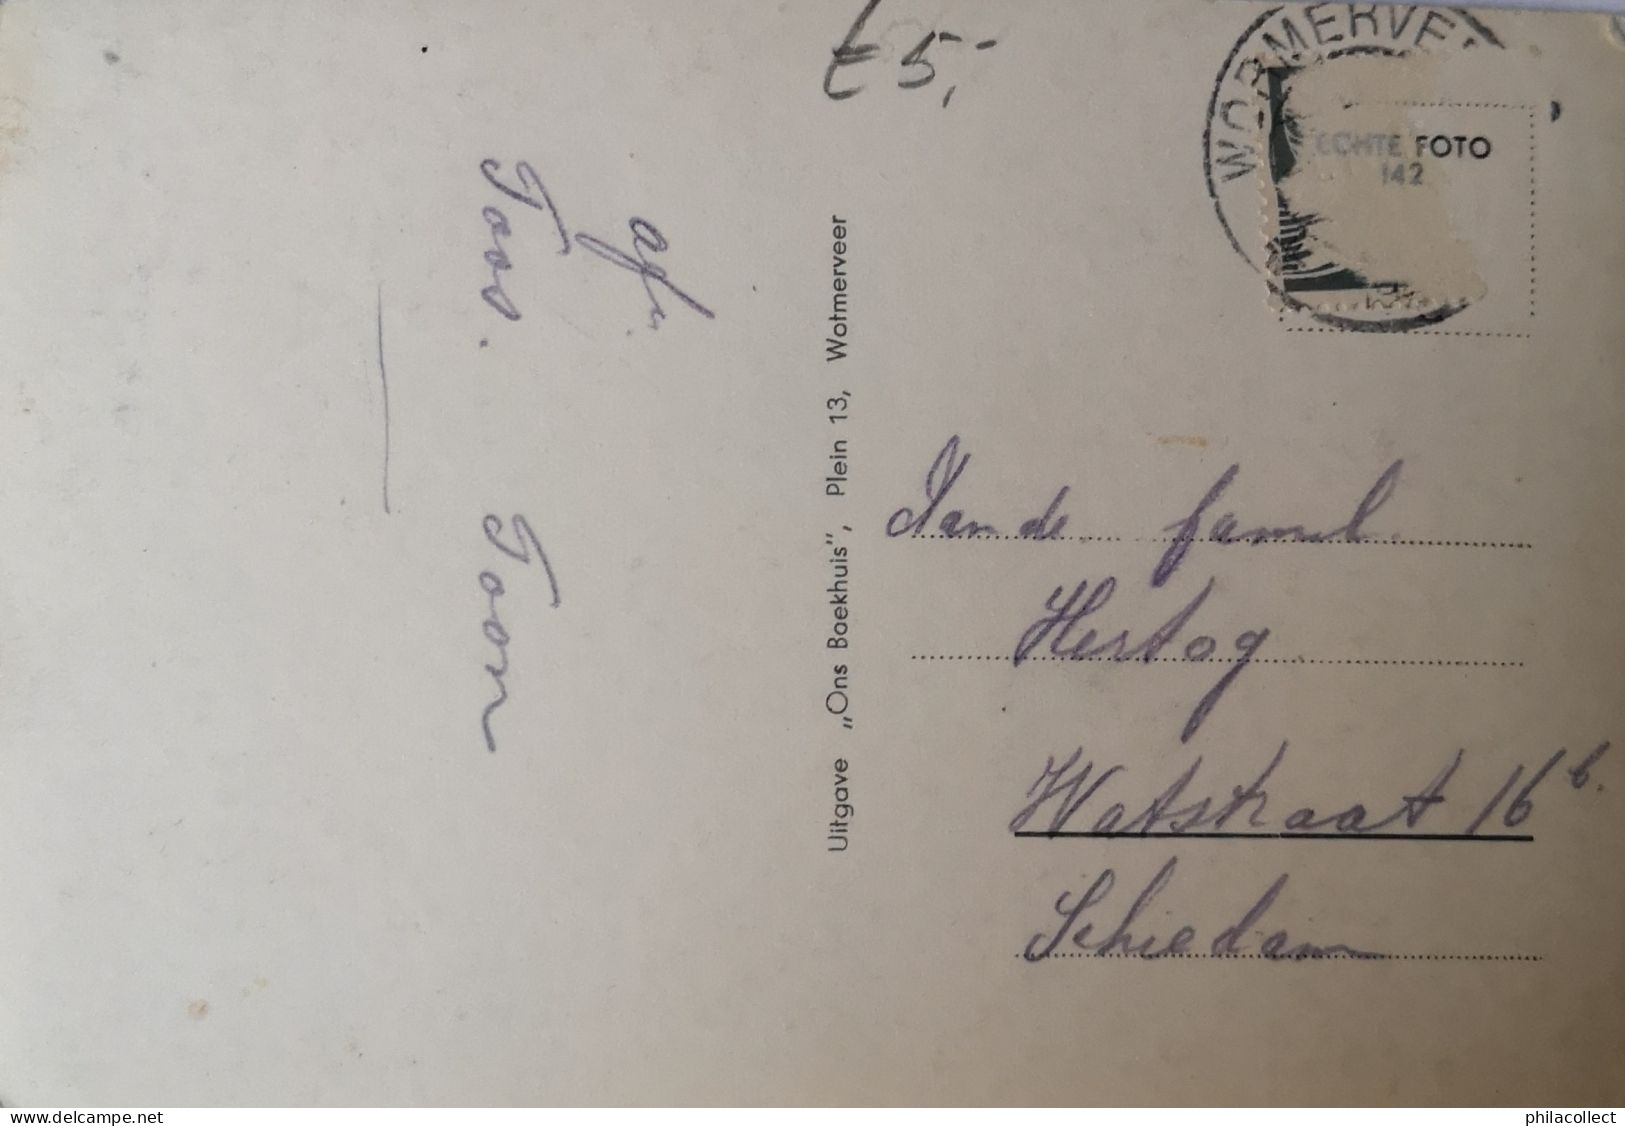 £ 5,-
WORMERVE
ECHTE FOTO
142
afz.
Toos. Toon
Uitgave „Ons Boekhuis”, Plein 13, Wormerveer
Aan de famil.
Hertog
Watstraat 16 b.
Schiedam
www.delcampe.net
philacollect